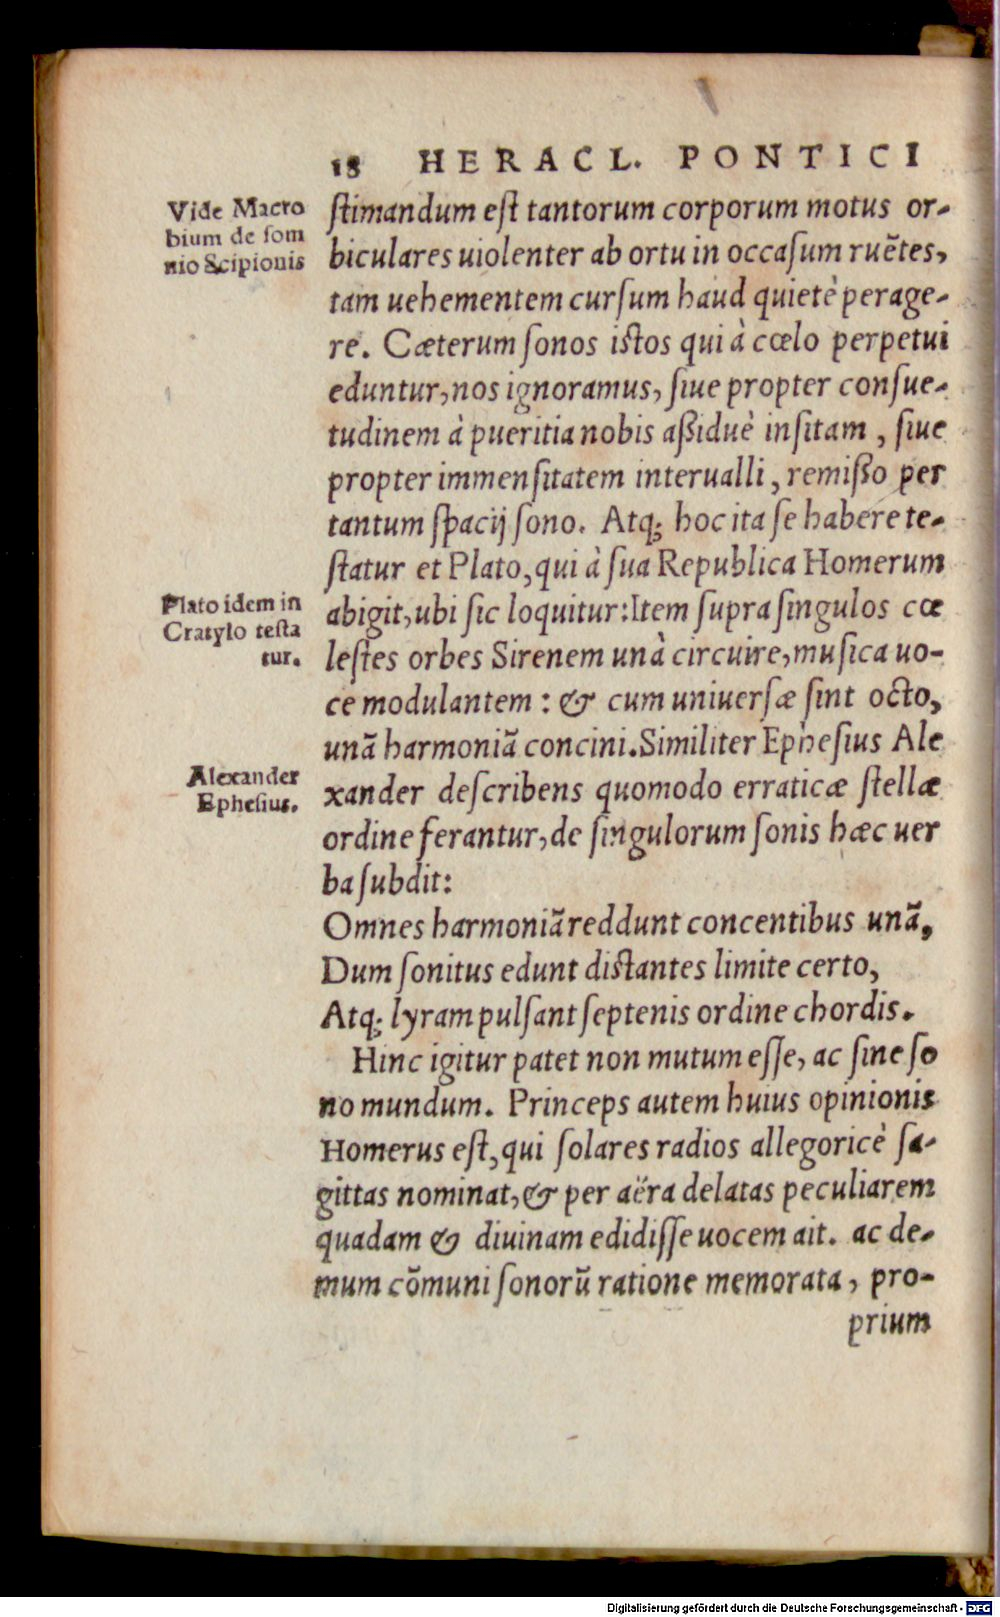 18 HERACL. PONTICI
Vide Macro
bium de ſom
nio Scipionis
ſtimandum eſt tantorum corporum motus or-
biculares uiolenter ab ortu in occaſum ruẽtes,
tam uehementem curſum haud quietè perage-
re. Cæterum ſonos iſtos qui à cœlo perpetui
eduntur, nos ignoramus, ſiue propter conſue-
tudinem à pueritia nobis aßiduè inſitam, ſiue
propter immenſitatem interualli, remißo per
tantum ſpacij ſono. Atq; hoc ita ſe habere te-
ſtatur et Plato, qui à ſua Republica Homerum
Plato idem in
Cratylo teſta
tur.
abigit, ubi ſic loquitur: Item ſupra ſingulos cœ
leſtes orbes Sirenem unà circuire, muſica uo-
ce modulantem: & cum uniuerſæ ſint octo,
unã harmoniã concini. Similiter Epheſius Ale
Alexander
Epheſius.
xander deſcribens quomodo erraticæ ſtellæ
ordine ferantur, de ſingulorum ſonis hæc uer
ba ſubdit:
Omnes harmoniã reddunt concentibus unã,
Dum ſonitus edunt diſtantes limite certo,
Atq; lyram pulſant ſeptenis ordine chordis.
Hinc igitur patet non mutum eſſe, ac ſine ſo
no mundum. Princeps autem huius opinionis
Homerus eſt, qui ſolares radios allegoricè ſa-
gittas nominat, & per aëra delatas peculiarem
quadam & diuinam edidiſſe uocem ait. ac de-
mum cõmuni ſonorũ ratione memorata, pro-
prium
Digitalisierung gefördert durch die Deutsche Forschungsgemeinschaft - DFG